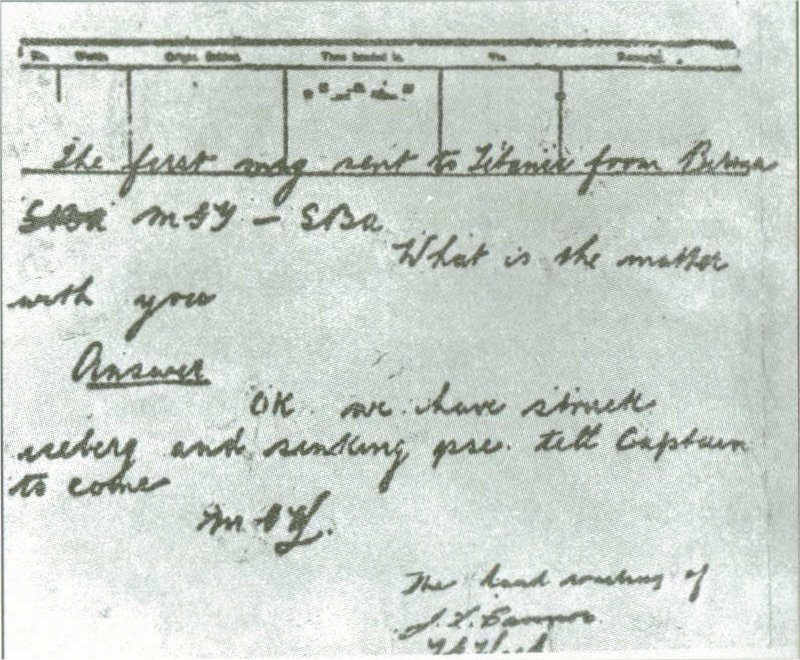 No. Words. Origin. Station. Time handed in. Via. Remarks.
The first msg sent to Titanic from Birma
SBA MGY — SBA
What is the matter
with you
Answer
OK we have struck
iceberg and sinking pse. tell Captain
to come
MGY.
The hand writing of
J. L. Cannon